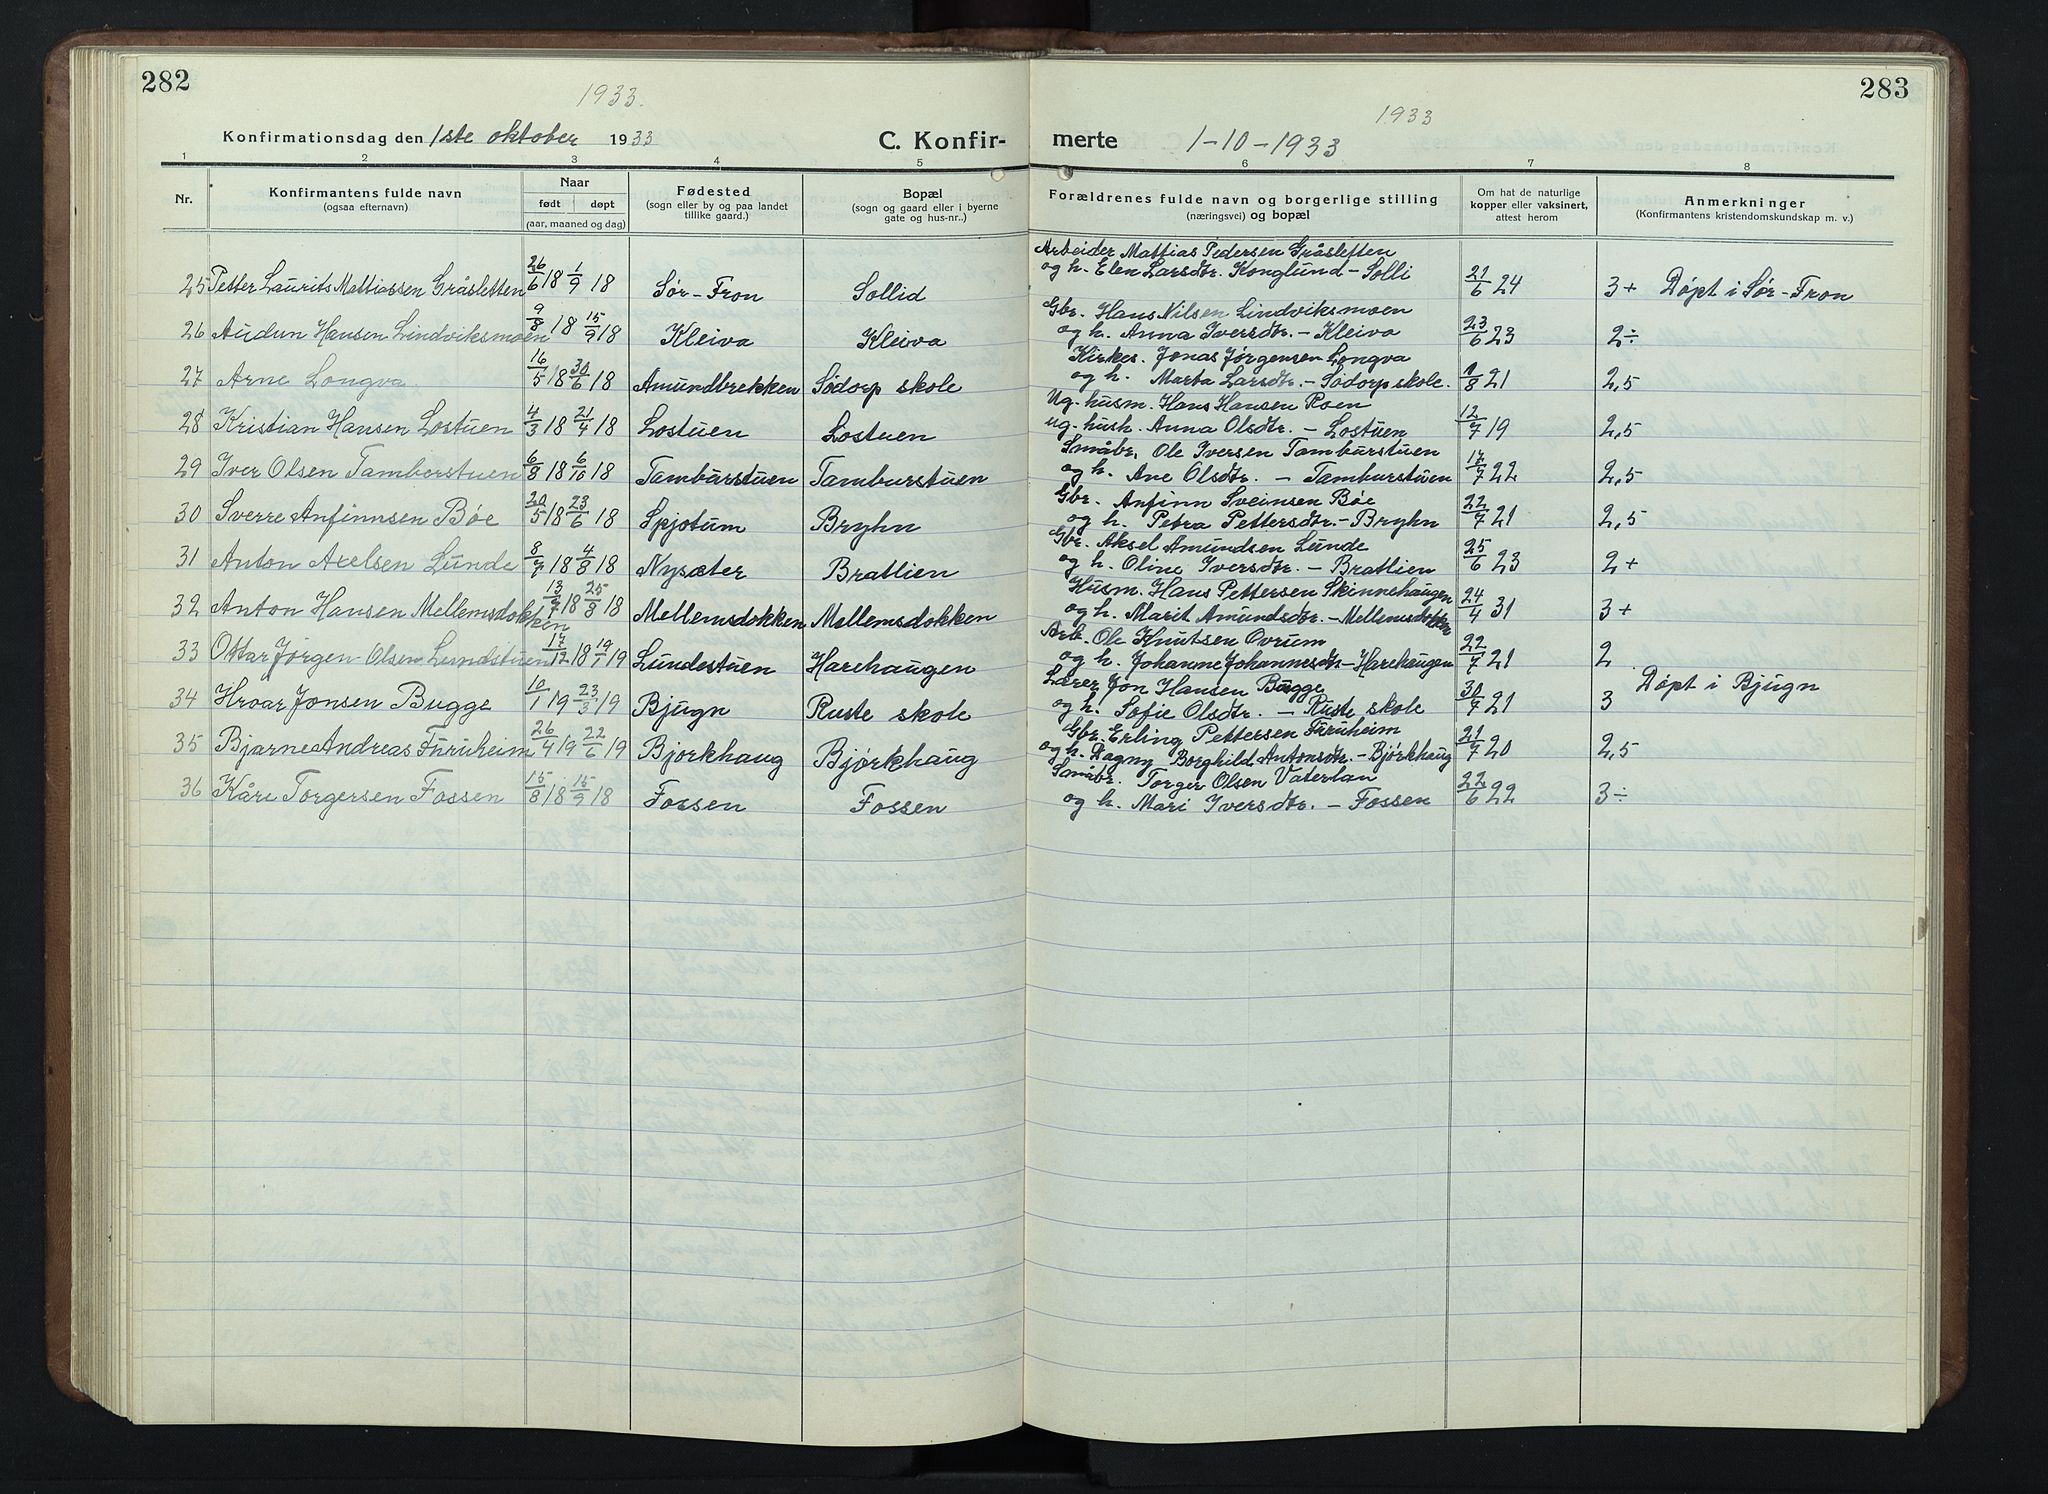 282
1933.
Konfirmationsdag den 1ste oktober 1933
C. Konfir-
1 2 3 4 5
Nr.
Konfirmantens fulde navn
(ogsaa efternavn)
Naar
født døpt
(aar, maaned og dag)
Fødested
(sogn eller by og paa landet
tillike gaard.)
Bopæl
(sogn og gaard eller i byerne
gate og hus-nr..)
25 Petter Laurits Mattiassen Gråsletten 26/6 18 1/9 18 Sør-Fron Sollid
26 Audun Hansen Lindviksmoen 9/8 18 15/9 18 Kleiva Kleiva
27 Arne Longva 16/5 18 30/6 18 Amundbrekken Sødorp skole
28 Kristian Hansen Lostuen 4/3 18 21/4 18 Lostuen Lostuen
29 Iver Olsen Tamberstuen 6/8 18 6/10 18 Tamburstuen Tamburstuen
30 Sverre Anfinnsen Bøe 20/5 18 23/6 18 Spjotum Bryhn
31 Anton Axelsen Lunde 8/7 18 4/8 18 Nysæter Bratlien
32 Anton Hansen Mellemsdokken 13/7 18 25/8 18 Mellemsdokken Mellemsdokken
33 Ottar Jørgen Olsen Lundstuen 17/12 18 19/1 19 Lundestuen Harehaugen
34 Hroar Jonsen Bugge 10/1 19 23/3 19 Bjugn Ruste skole
35 Bjarne Andreas Furuheim 26/4 19 22/6 19 Bjorkhaug Bjørkhaug
36 Kåre Torgersen Fossen 15/8 18 15/9 18 Fossen Fossen
283
1933
merte 1-10-1933
6 7 8
Forældrenes fulde navn og borgerlige stilling
(næringsvei) og bopæl
Om hat de naturlige
kopper eller vaksinert,
attest herom
Anmerkninger
(Konfirmantens kristendomskundskap m. v.)
Arbeider Mattias Pedersen Gråsletten
og h. Elen Larsdtr. Konglund - Solli 21/6 24 3+ Døpt i Sør-Fron
Gbr. Hans Nilsen Lindviksmoen
og h. Anna Iversdtr. - Kleiva 23/6 23 2÷
Kirkes. Jonas Jørgensen Longva
og h. Marta Larsdtr. - Sødorp skole. 1/8 21 2,5
Ug. husm. Hans Hansen Roen
ug. hush. Anna Olsdtr. - Lostuen 12/7 19 2,5
Småbr. Ole Iversen Tamburstuen
og h. Ane Olsdtr. - Tamburstuen 17/7 22 2,5
Gbr. Anfinn Sveinsen Bøe
og h. Petra Pettersdtr. - Bryhn 22/7 21 2,5
Gbr. Aksel Amundsen Lunde
og h. Oline Iversdtr. - Bratlien 25/6 23 2+
Husm. Hans Pettersen Skinnehaugen
og h. Marit Amundsdtr. - Mellemsdokken 24/4 31 3+
Arb. Ole Knutsen Ovrum
og h. Johanne Johannesdtr - Harehaugen 22/7 21 2
Lærer Jon Hansen Bugge
og h. Sofie Olsdtr. - Ruste skole 30/7 21 3 Døpt i Bjugn
Gbr. Erling Pettersen Furuheim
og h. Dagny Borghild Antonsdtr. - Bjørkhaug 21/7 20 2,5
Småbr. Torger Olsen Vaterlan
og h. Mari Iversdtr. - Fossen 22/6 22 3÷